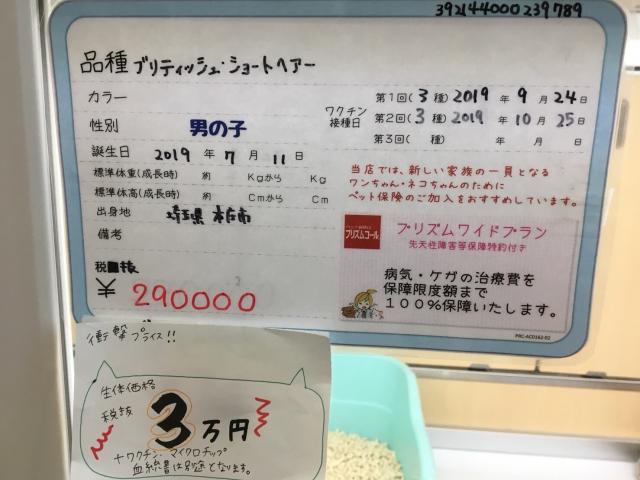 392144000239789
品種 ブリティッシュ・ショートヘアー
カラー
性別 男の子
誕生日 2019 年 7 月 11 日
標準体重(成長時) 約 Kgから Kg
標準体高(成長時) 約 Cmから Cm
出身地 埼玉県 本庄市
備考
税抜
¥ 290000
ワクチン接種日
第1回(3種) 2019 年 9 月 24 日
第2回(3種) 2019 年 10 月 25 日
第3回( 種) 年 月 日
当店では、新しい家族の一員となる
ワンちゃん・ネコちゃんのために
ペット保険のご加入をおすすめしています。
プリズムコール
プリズムワイドプラン
先天性障害等保障特約付き
病気・ケガの治療費を
保障限度額まで
100%保障いたします。
PRC-AC0162-02
衝撃プライス!!
生体価格
税抜
3万円
+ワクチン・マイクロチップ
血統書は別途となります。